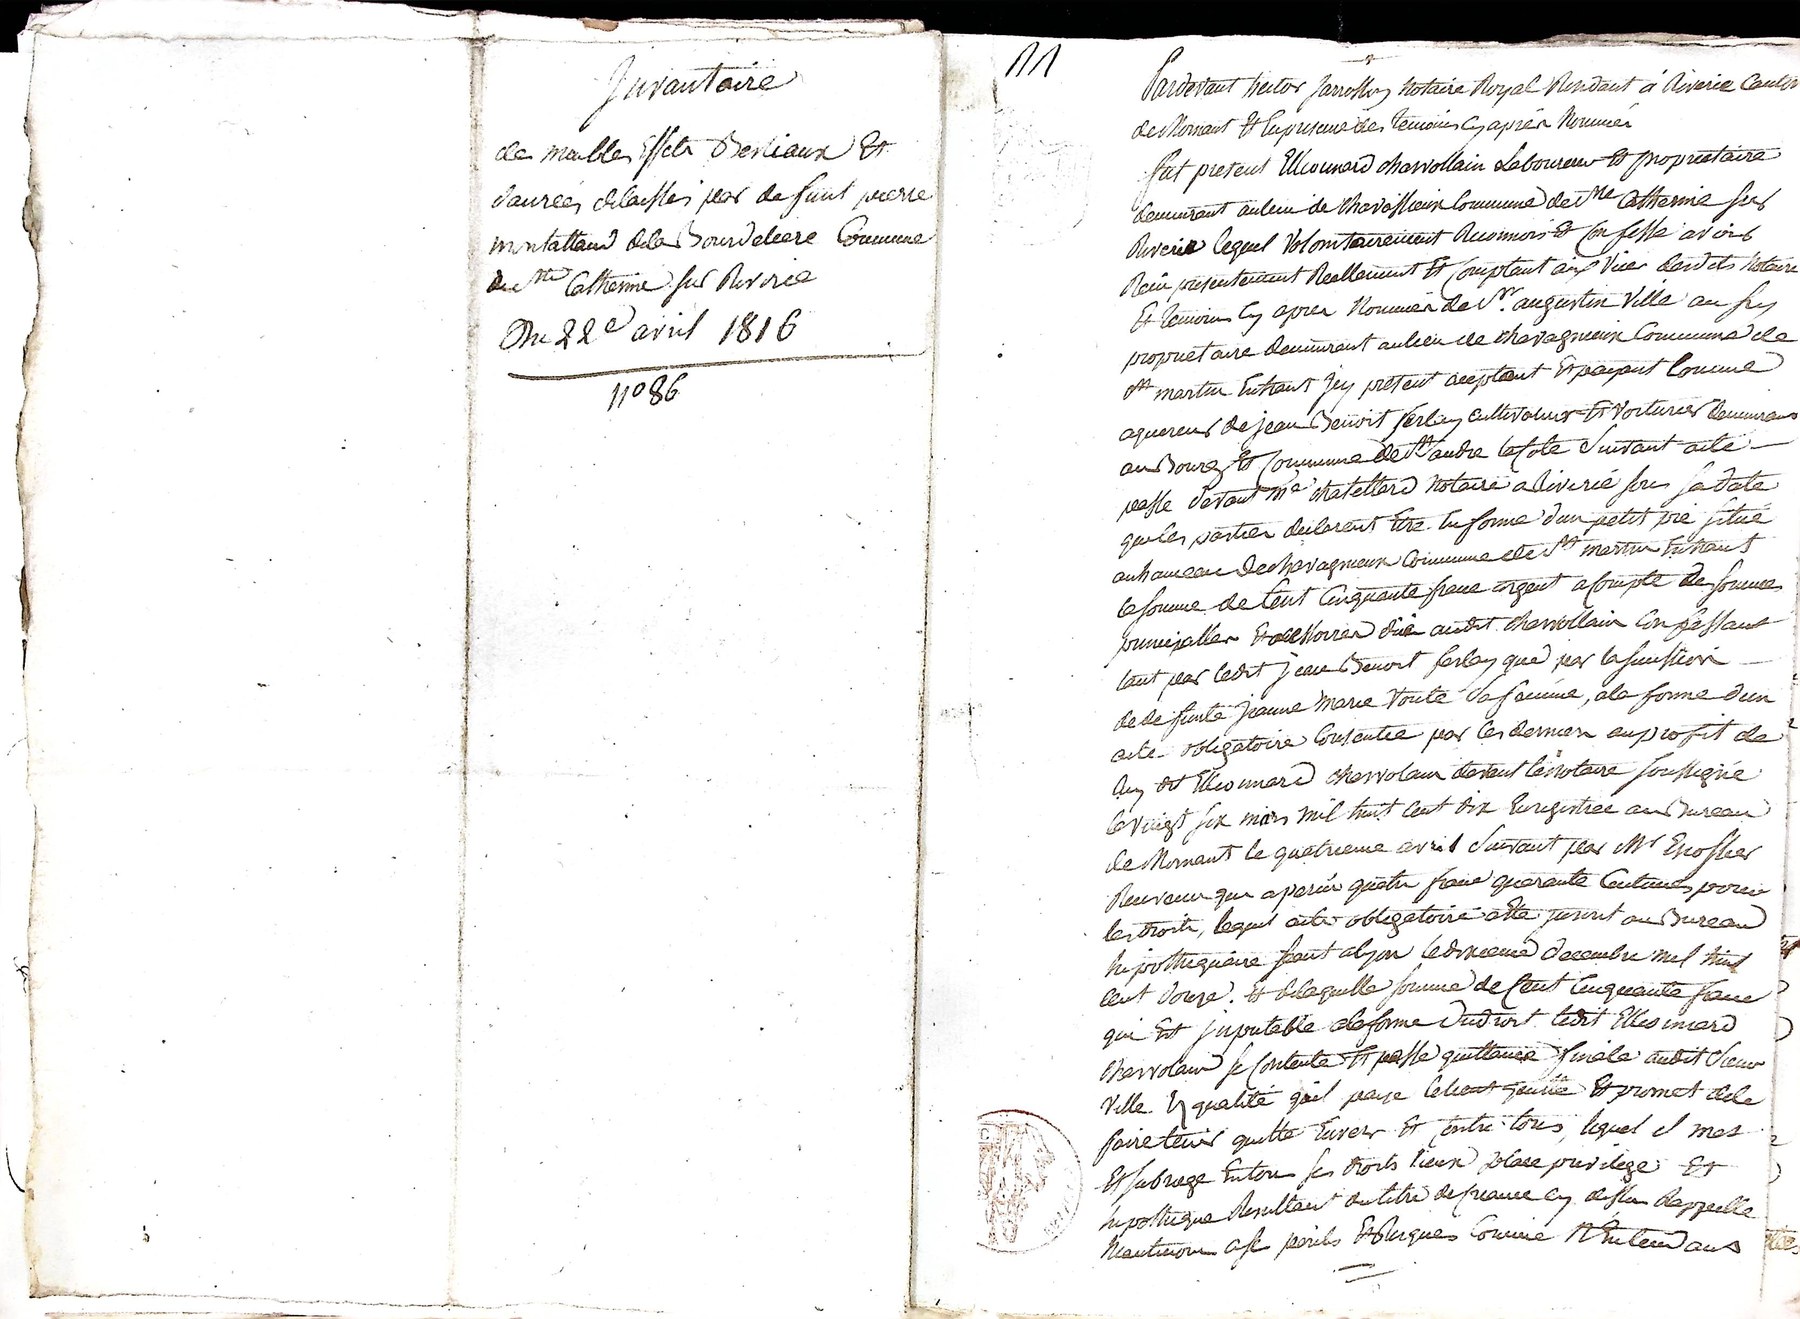 Invantaire
des meubles Effets Bestiaux Et
danrées delaissés par defunt pierre
montalland dela Bourdeliere Commune
de Ste Catherine sur Riverie
Du 22e avril 1816
n° 86
Pardevant hector Jarrosson Notaire Royal Residant á Riverie Canton
de Mornant Et En presence des temoins Cy après Nommés
fut present Elleonnard charvollain Laboureur Et proprietaire
demeurant au lieu de chavassieux Commune de Ste Catherine sur
Riverie lequel Volontairement Reconnois Et Confesse avoir
Recu presentement Reellement Et Comptant aux Vues desdits Notaire
Et temoins Cy après Nommés de Sr. augustin Ville au fils
proprietaire demeurant au lieu de chavagnieux Commune de
St martin Enhaut Icy present aceptant Et payant Comme
aquereur de jean Benoit ferlay cultivateur Et Voiturier demeurans
au Bourg Et Commune de St andre la Cote Suivant acte
passe devant Me chatellard Notaire a Riverié sous sa date
que les parties declarent Etre En forme d'un petit pré situé
au hameau de chavagnieux Commune de St martin Enhaut
la somme de Cent Cinquante franc argent a Compte de sommes
principalles Et accessoires düe audit charvollain Confessant
tant par ledit jean Benoit ferlay que par la sucssion
de defunte jeanne Marie Voute sa femme, ala forme d'un
acte obligatoire Consentie par les derniers au profit de
du dt Elleonnard charvolain devant le Notaire soussigné
le vingt six mars mil huit Cent dix Enregistree au Bureau
de Mornant le quatrieme avril Suivant par Mr
Receveur qui a percu quatre franc quarante Centimes pour
les droits, lequel acte obligatoire a Ete inscrit au Bureau
hipothequaire seant a Lyon le dixieme decembre mil huit
Cent douze. Et de laquelle somme de Cent Cinquante franc
qui Est imputable ala forme du droit ledit Elleonnard
charvolain se Contente Et passe quittance finale audit Sieur
Ville En qualité qu'il paye le tient quitte Et promet de le
faire tenir quitte Envers Et Contre tous, lequel il met
Et subroge En tous ses droits lieux place privilege Et
hipotheque Resultant du titre de Creance Cy dessus Rappelle
Neantmoins a ses perils Et Risques Comme N'Entendans